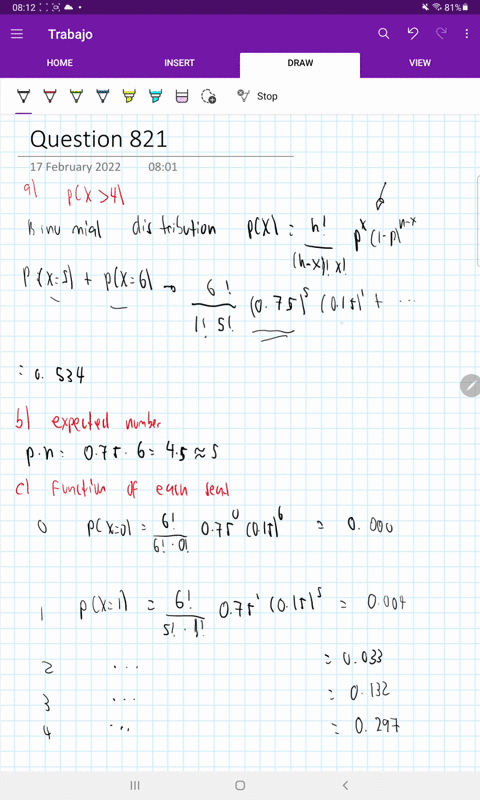 08:12
81%
Trabajo
HOME INSERT DRAW VIEW
Stop
Question 821
17 February 2022 08:01
a) P(X>4)
Binumial distribution P(X) = n! / (n-x)! x! p^x (1-p)^n-x
P(X=5) + P(X=6) → 6! / 1! 5! (0.75)^5 (0.25)^1 + ...
= 0.534
b) expected number
p.n = 0.75 . 6 = 4.5 ≈ 5
c) Function of each
0 P(X=0) = 6! / 6! · 0! 0.75^0 (0.25)^6 = 0.000
1 P(X=1) = 6! / 5! · 1! 0.75^1 (0.25)^5 = 0.004
2 ... = 0.033
3 ... = 0.132
4 ... = 0.297